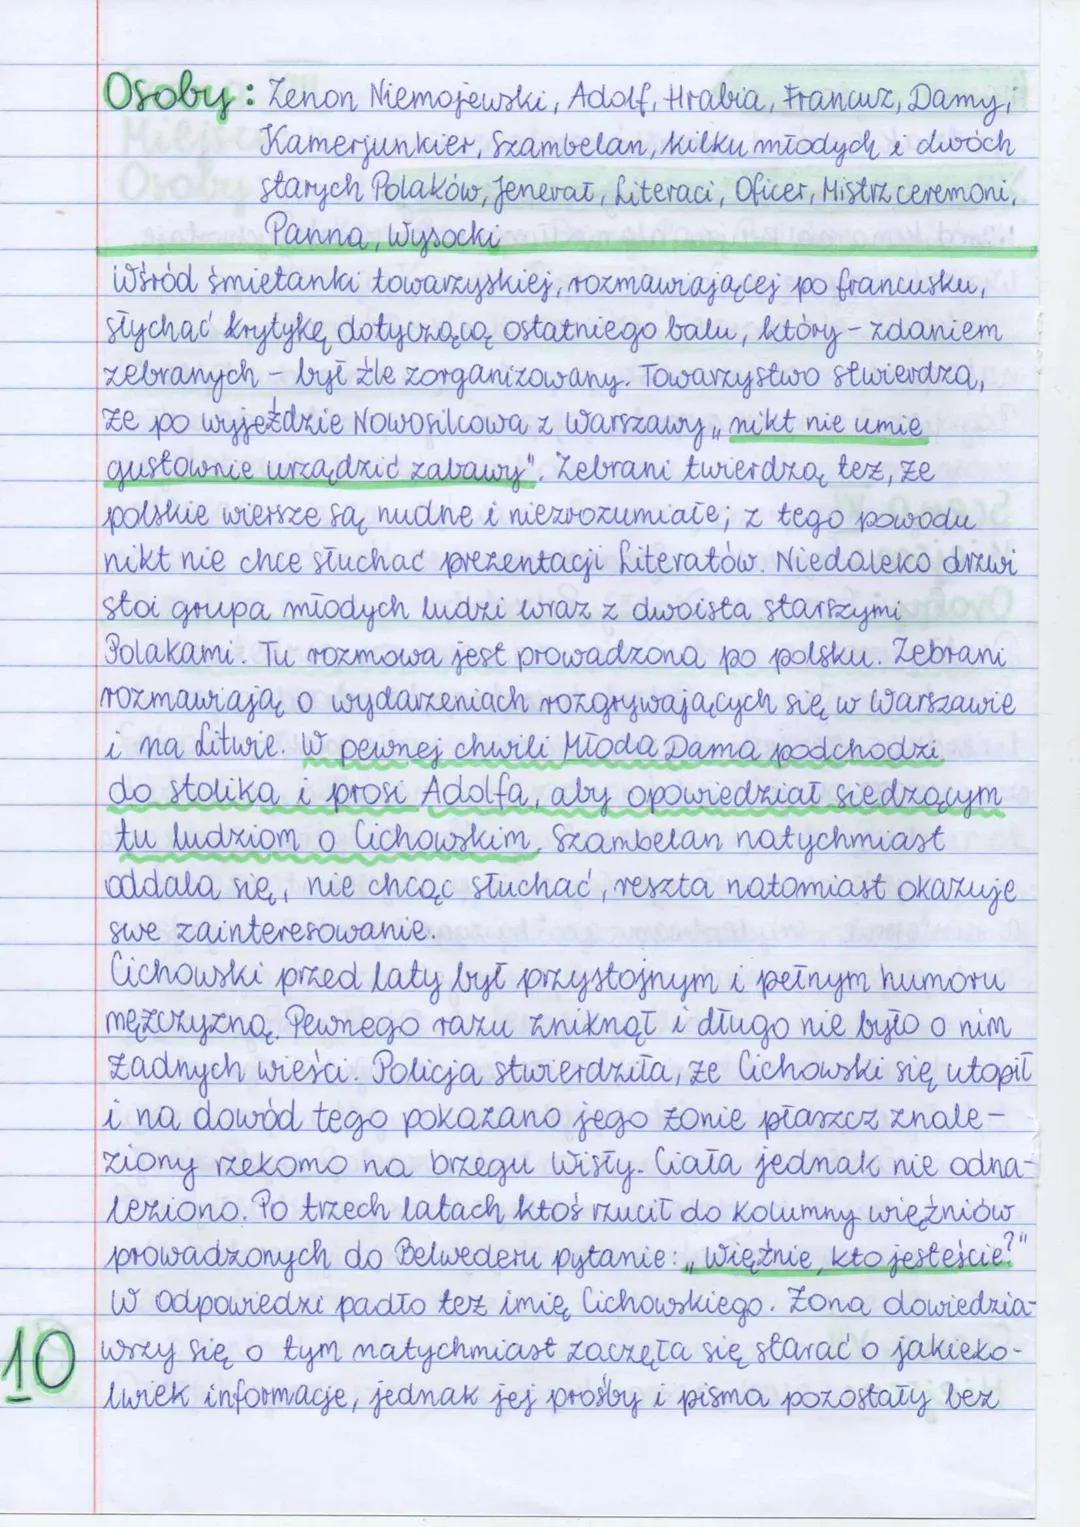 Osoby: Zenon Niemojewski, Adolf, Hrabia, Francuz, Damy,
Kamerjunkier, Szambelan, kilku młodych i dwóch
starych Polaków, Jenerał, Literaci, Oficer, Mistrz ceremoni,
Panna, Wysocki
Wśród śmietanki towarzyskiej, rozmawiającej po francusku,
słychać krytykę dotyczącą ostatniego balu, który - zdaniem
zebranych - był źle zorganizowany. Towarzystwo stwierdza,
że po wyjeździe Nowosilcowa z Warszawy „nikt nie umie
gustownie urządzić zabawy". Zebrani twierdzą też, że
polskie wiersze są nudne i niezrozumiałe; z tego powodu
nikt nie chce słuchać prezentacji Literatów. Niedaleko drzwi
stoi grupa młodych ludzi wraz z dwoista starszymi
Polakami. Tu rozmowa jest prowadzona po polsku. Zebrani
rozmawiają o wydarzeniach rozgrywających się w Warszawie
i na Litwie. W pewnej chwili Młoda Dama podchodzi
do stolika i prosi Adolfa, aby opowiedział siedzącym
tu ludziom o Cichowskim. Szambelan natychmiast
oddala się, nie chcąc słuchać, reszta natomiast okazuje
swe zainteresowanie.
Cichowski przed laty był przystojnym i pełnym humoru
mężczyzną. Pewnego razu zniknął i długo nie było o nim
żadnych wieści. Policja stwierdziła, że Cichowski się utopił
i na dowód tego pokazano jego żonie płaszcz znale-
ziony rzekomo na brzegu Wisły. Ciała jednak nie odna-
leziono. Po trzech latach ktoś rzucił do kolumny więźniów
prowadzonych do Belwederu pytanie: „Więźnie, kto jesteście?"
W odpowiedzi padło też imię Cichowskiego. Żona dowiedzia-
wszy się o tym natychmiast zaczęła się starać o jakieko-
lwiek informacje, jednak jej prośby i pisma pozostały bez
10